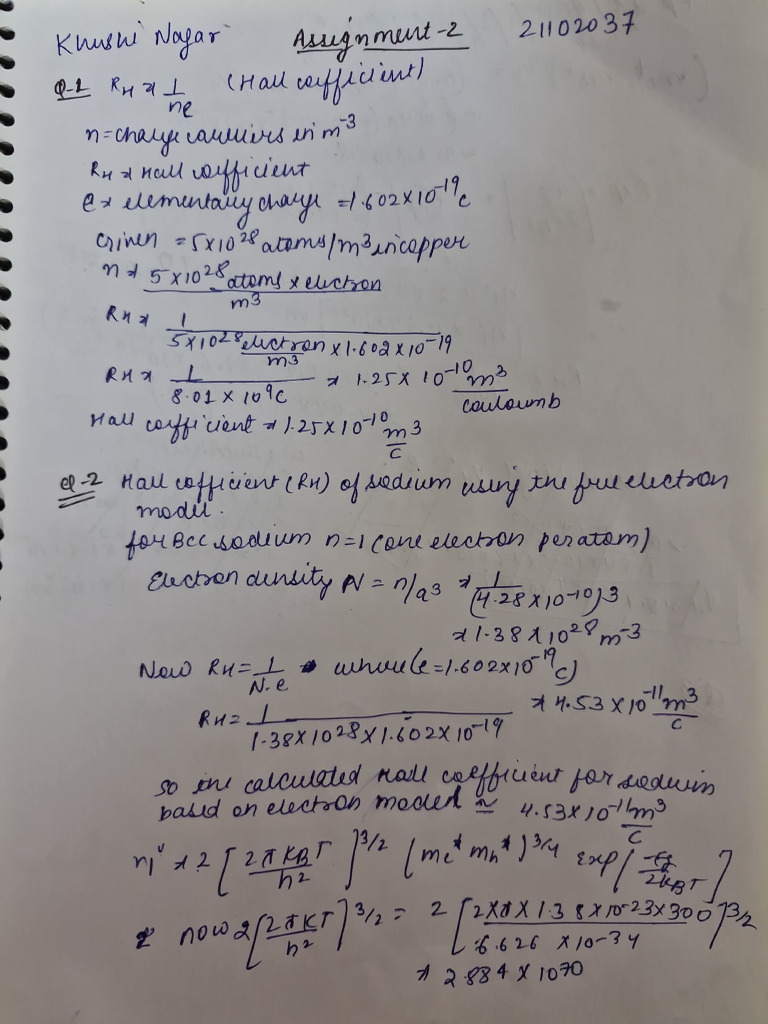 Khushi Nagar Assignment-2 21102037
Q-1 RH → 1/ne (Hall coefficient)
n = charge carriers in m⁻³
RH → Hall coefficient
e → elementary charge = 1.602×10⁻¹⁹ C
Given = 5×10²⁸ atoms/m³ in copper
n → 5×10²⁸ atoms × electron / m³
RH → 1 / 5×10²⁸ electron/m³ × 1.602×10⁻¹⁹
RH → 1 / 8.01 × 10⁹ C → 1.25 × 10⁻¹⁰ m³/couloumb
Hall coefficient → 1.25×10⁻¹⁰ m³/C
Q-2 Hall cofficient (RH) of sodium using the free electron
model.
for BCC sodium n=1 (one electron per atom)
Electron density N = n/a³ → 1/(4.28×10⁻¹⁰)³
→ 1.38×10²⁸ m⁻³
Now RH = 1/N.e where (e=1.602×10⁻¹⁹ C)
RH = 1 / 1.38×10²⁸×1.602×10⁻¹⁹ → 4.53×10⁻¹¹ m³/C
so the calculated Hall coefficient for sodium
based on electron model ≃ 4.53×10⁻¹¹ m³/C
ni → 2 [2πKBT/h²]^3/2 (me* mh*)^3/4 exp[-Eg/2KBT]
now 2[2πKT/h²]^3/2 = 2 [2×π×1.38×10-23×300 / 6.626 ×10-34]^3/2
→ 2.884 × 1070